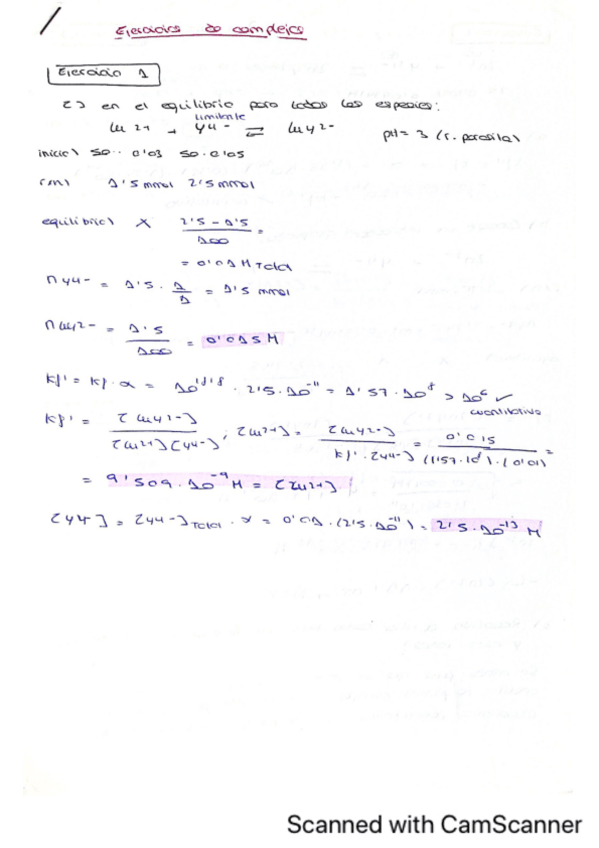 Ejercicios de complejos
Ejercicio 1
[ ] en el equilibrio para todas las especies:
limitante
Cu2+ + Y4- ⇌ CuY2- pH = 3 (r. parasita)
inicial 50 · 0'03 50 · 0'05
(m) 1'5 mmol 2'5 mmol
equilibrio) X 2'5 - 1'5 / 100 =
= 0'01 M Total
n Y4- = 1'5 · 1/1 = 1'5 mmol
n CuY2- = 1'5 / 100 = 0'015 M
Kf' = Kf · α = 10^18'8 · 2'5 · 10^-11 = 1'57 · 10^8 > 10^6 ✓
cuantitativo
Kf' = [CuY2-] / [Cu2+][Y4-] ; [Cu2+] = [CuY2-] / Kf' · [Y4-] = 0'015 / (1'57 · 10^8) · (0'01) =
= 9'509 · 10^-9 M = [Cu2+]
[Y4-] = [Y4-]Total · α = 0'01 · (2'5 · 10^-11) = 2'5 · 10^-13 M
Scanned with CamScanner